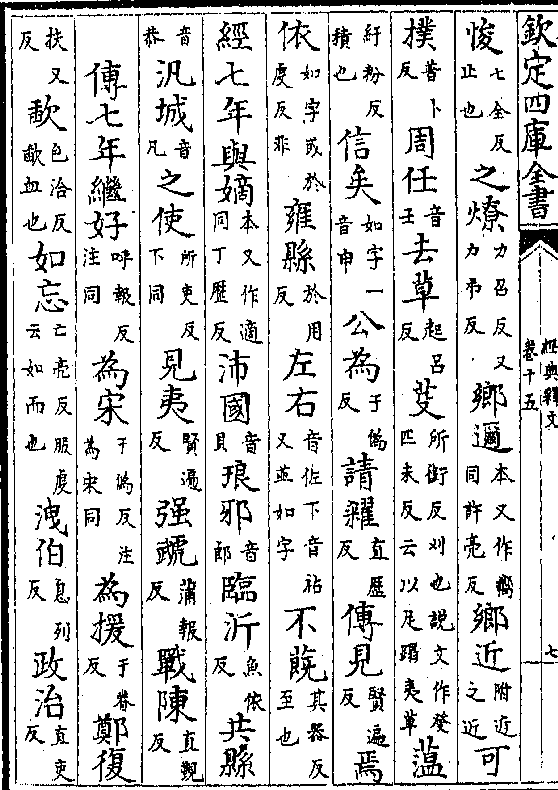 欽定四庫全書
經典釋文
卷十五
七
悛七全反止也之燎力召反又力弔反鄉邇本又作嚮同許亮反鄉近附近之近可
撲普卜反周任音壬去草起呂反芟所銜反刈也說文作癹匹末反云以足蹋夷草蕰
紆粉反積也信矣如字一音申公為于偽反請糴直歷反傳見賢遍反焉
依如字或於虔反非雍縣於用反左右音佐下音祐又並如字不䕌其器反至也
經七年與嫡本又作適同丁歷反沛國音貝琅邪音郎臨沂魚依反共縣
音恭汎城音凡之使所吏反下同見夷賢遍反强虣蒲報反戰陳直覲反
傳七年繼好呼報反注同為宋于偽反注為宋同為援于眷反鄭復
扶又反歃色洽反歃血也如忘亡亮反服虔云如而也洩伯息列反政治直吏反